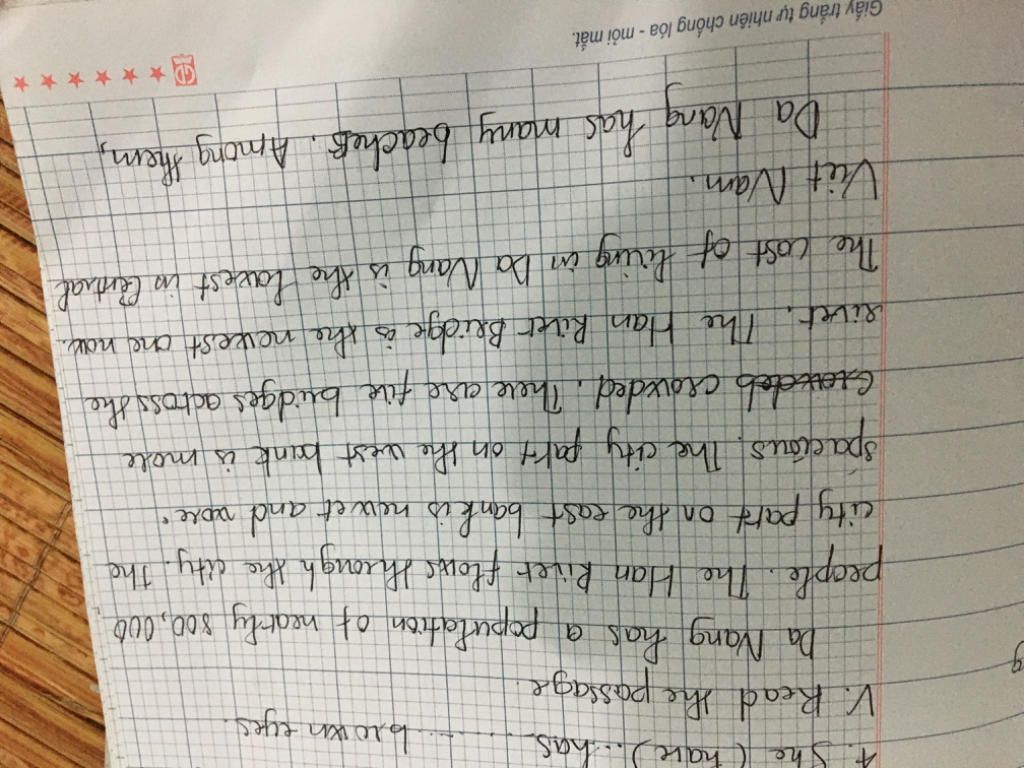 4. She (have)...has............ brown eyes.
V. Read the passage.
Da Nang has a population of nearly 800,000
people. The Han River flows through the city. The
city part on the east bank is newer and more
spacious. The city part on the west bank is more
crowded. There are five bridges across the
river. The Han River Bridge is the newest one now.
The cost of living in Da Nang is the lowest in Central
Viet Nam.
Da Nang has many beaches. Among them,
Giấy trắng tự nhiên chống lóa - mỏi mắt.